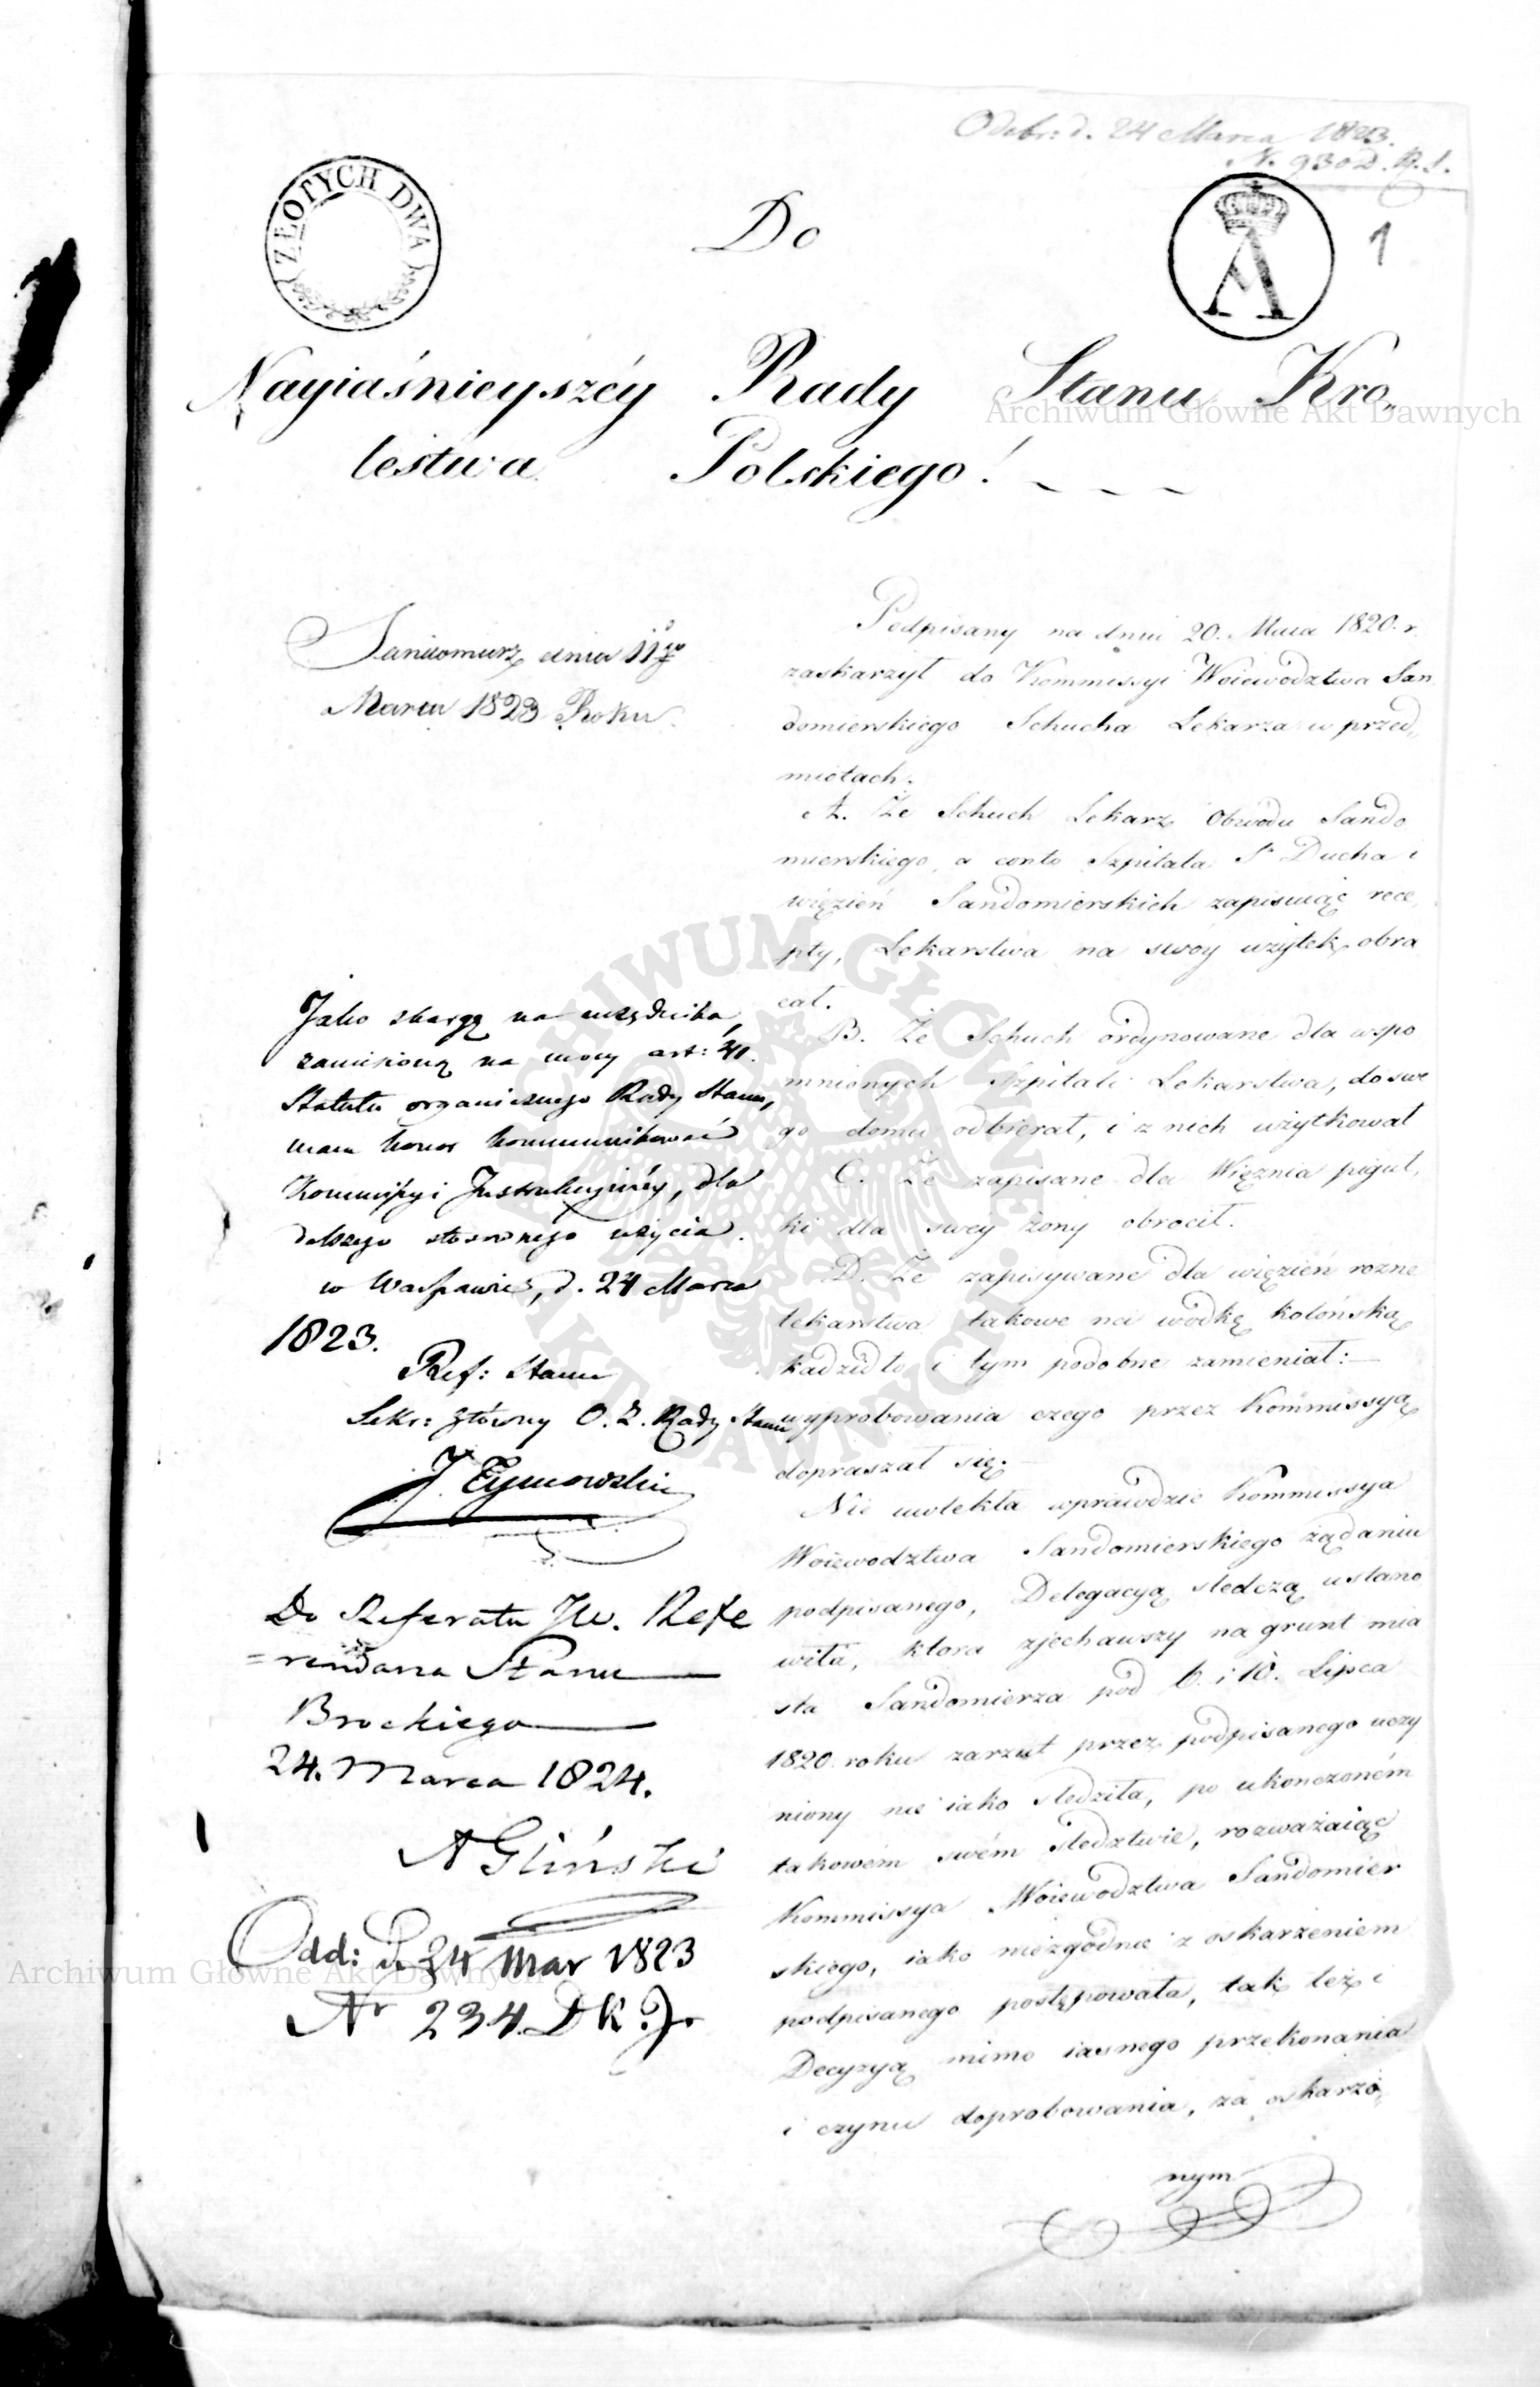 Odebr: d. 24 Marca 1823.
N. 930 D. R. S.
ZŁOTYCH DWA
Do
A
1
Nayiaśnieyszéy Rady Stanu Kro„
lestwa Polskiego!
Sandomierz dnia 11go
Marca 1823 Roku
Podpisany na dniu 20. Maia 1820. r.
zaskarzył do Kommissyi Woiewodztwa San
domierskiego Schucha Lekarza w przed„
miotach.
A. Że Schuch Lekarz Obwodu Sando
mierskiego, a conto Szpitala S. Ducha i
więzień Sandomierskich zapisuiąc rece
pty, Lekarstwa na swóy użytek obra
cał.
B. Że Schuch ordynowane dla wspo
mnionych Szpitali Lekarstwa, do swe
go domu odbierał, i z nich użytkował
C. Że zapisane dla Więznia piguł„
ki dla swey żony obrocił.
D. Że zapisywane dla więzien rozne
lekarstwa takowe na wodkę kolońską
kadzidło i tym podobne zamieniał:—
wyprobowania czego przez Kommissyą
dopraszał się.
Nie uwlekła wprawdzie Kommissya
Woiewodztwa Sandomierskiego żądaniu
podpisanego, Delegacyą sledczą ustano
wiła, ktora zjechawszy na grunt mia
sta Sandomierza pod 6. i 10. Lipca
1820. roku zarzut przez podpisanego uczy
niony nie iako sledziła, po ukonczoném
takowém swém sledztwie, rozważaiąc
Kommissya Woiewodztwa Sandomier
skiego, iako niezgodnie z oskarzeniem
podpisanego postępowała, tak też i
Decyzyą mimo iasnego przekonania
i czynu doprobowania, za oskarżo„
nym
Jako skargę na urzędnika,
zaniesioną na mocy art:
Statutu organicznego Rady Stanu,
mam honor kommunikować
Kommissyi Instrukcyinéy, dla
dalszego stosownego użycia.
w Warszawie, d. 24 Marca
1823.
Ref: Stanu
Sekr: główny O. Z. Rady Stanu
J. Tymowski
Do Referatu JW. Refe
=rendarza Stanu
Brockiego
24. Marca 1824.
A Gliński
Odd: d. 24 Mar 1823
Nr 234. D K. J.
Archiwum Główne Akt Dawnych
Archiwum Główne Akt Dawnych
ARCHIWUM GŁÓWNE AKT DAWNYCH